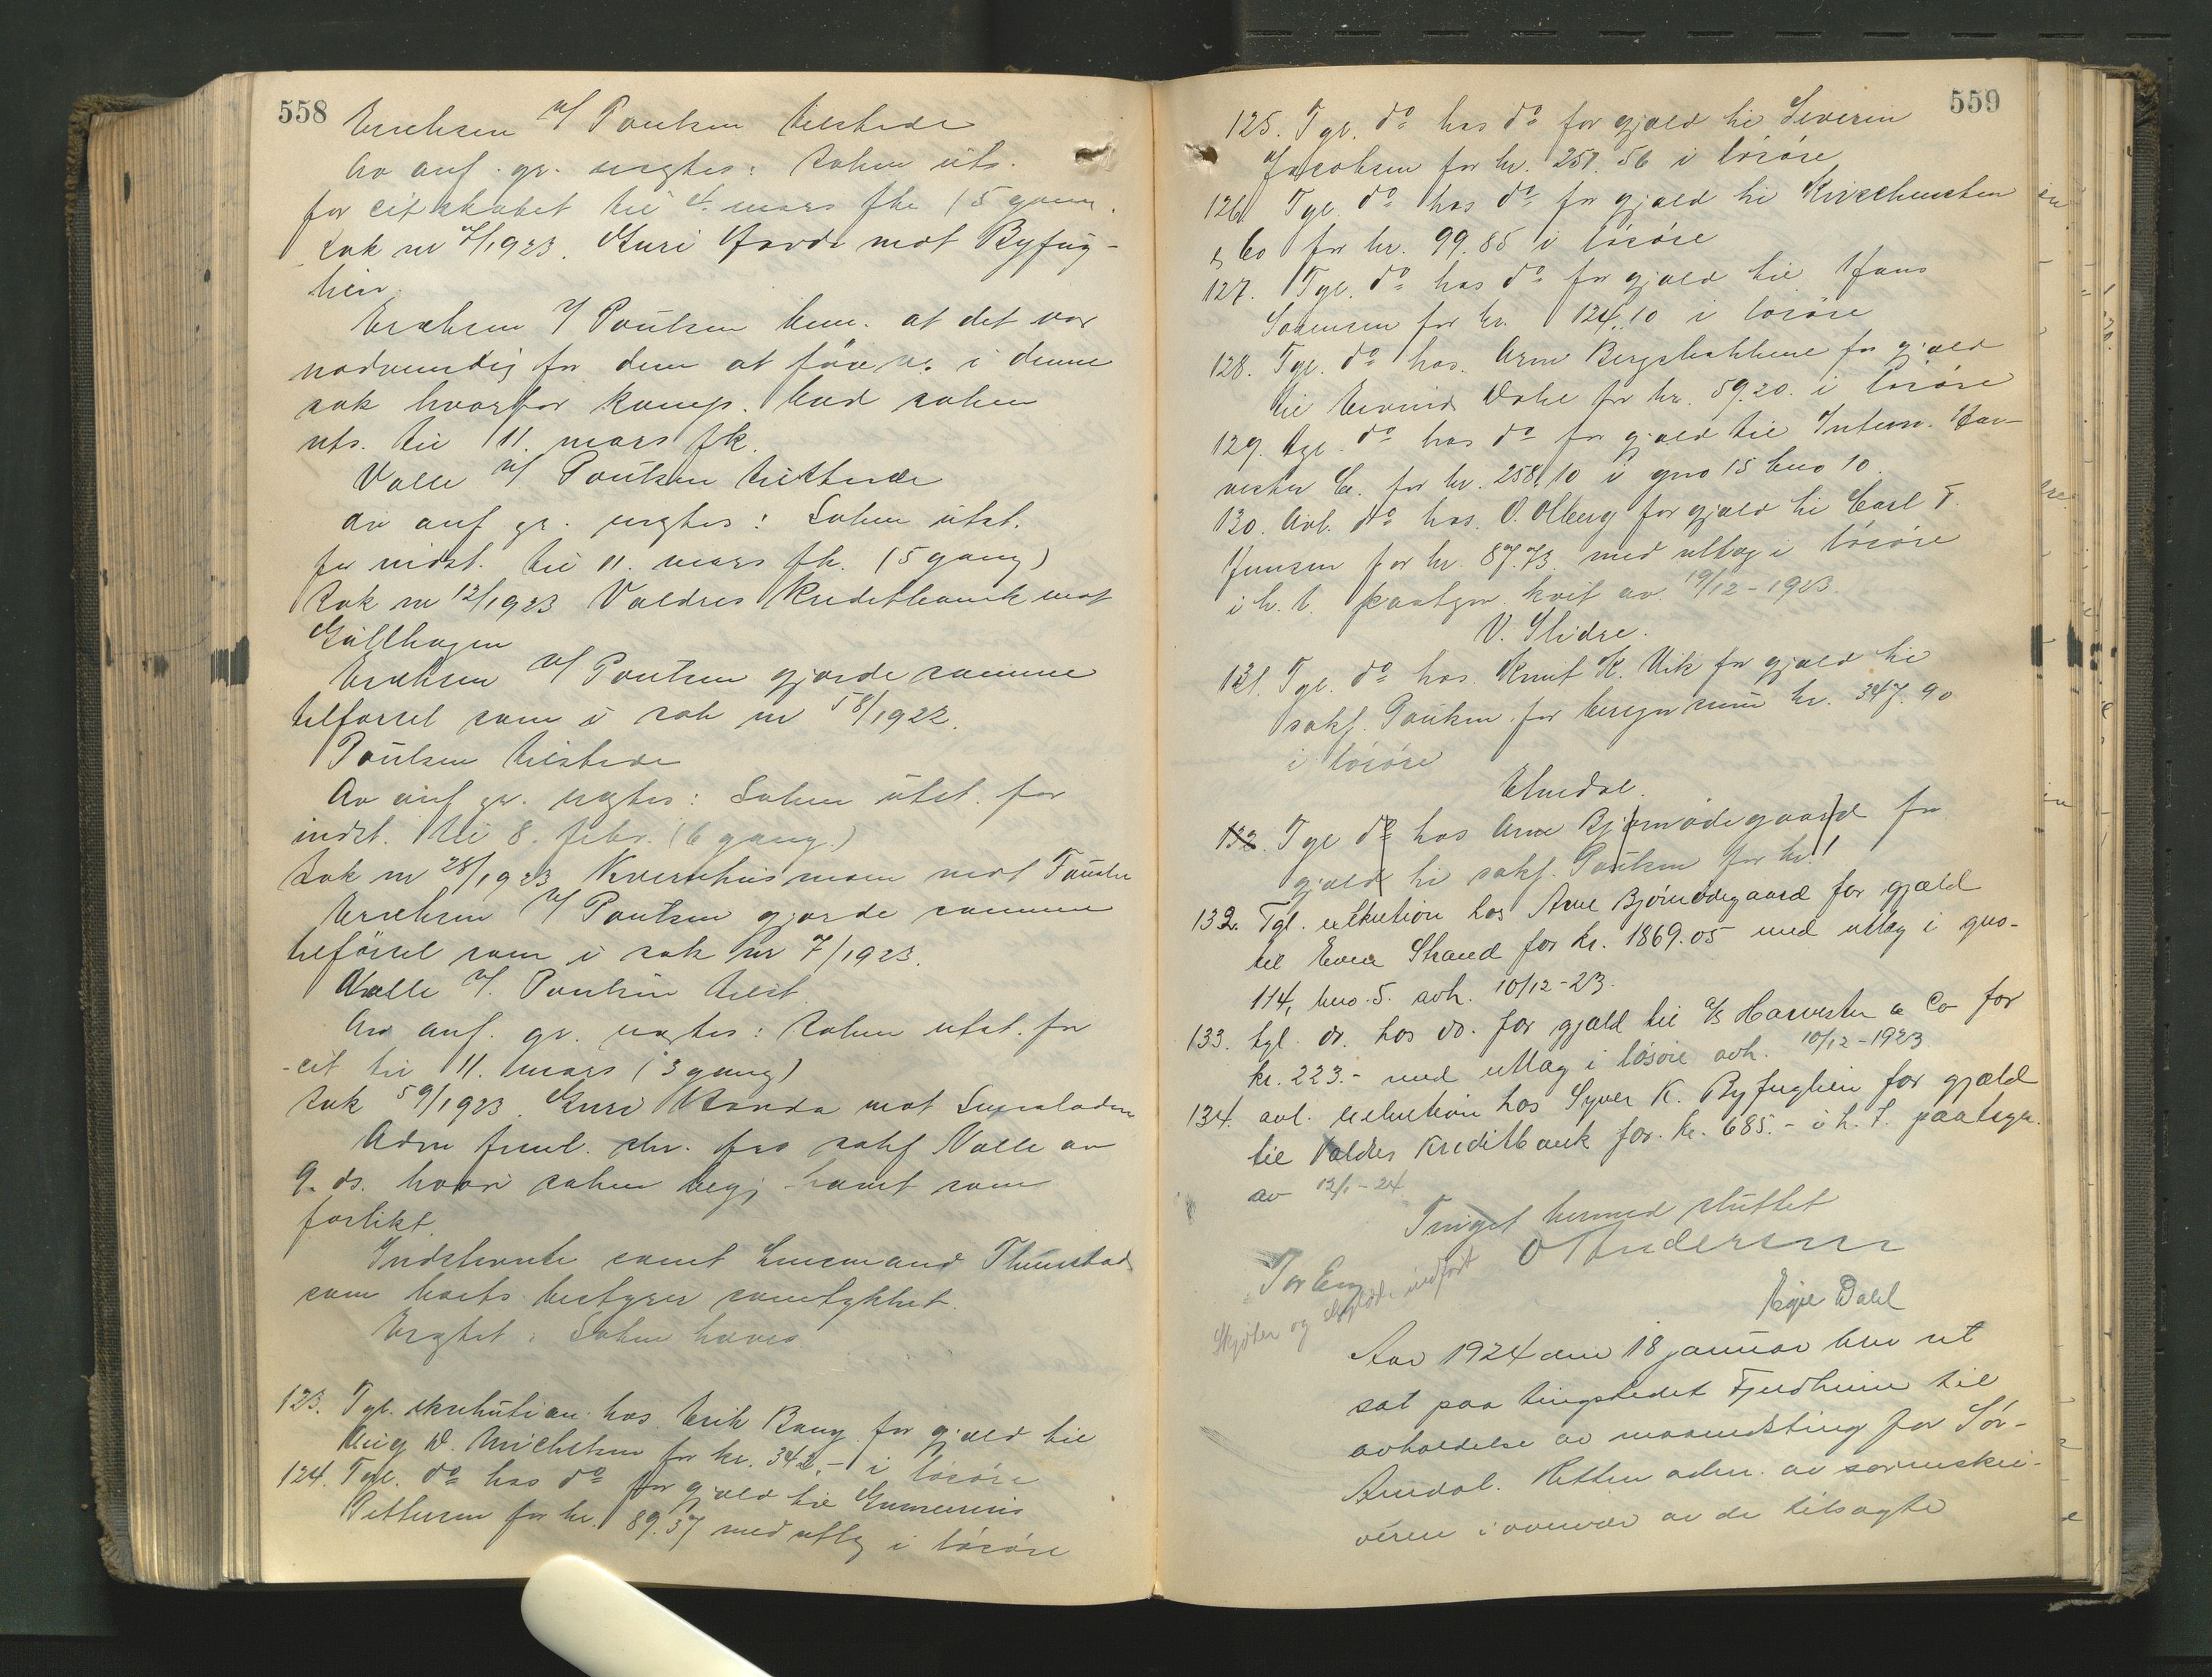 558
Erichsen v/ Poulsen tilstede
Av anf. gr. uægtes: Saken uts.
for cit skabet til 4. mars fk. (5 gang.
Sak nr 7/1923. Guri Garde mot Byfug-
lien.
Erichsen v/ Poulsen bem. at det var
nødvendig for dem at føre v. i denne
sak hvorfor komp. bad saken
uts. til 11. mars fk.
Valle v/ Poulsen tilstede
av anf gr. uægtes: Saken utst.
for vidst. til 11. mars fk. (5 gang)
Sak nr 12/1923 Valdres Kreditbank mot
Gullhagen
Erichsen v/ Poulsen gjorde samme
tilførsel som i sak nr 58/1922.
Poulsen tilstede
Av anf gr. uægtes: Saken utst. for
indst. til 8. febr. (6 gang.)
Sak nr 28/1923 Kvernhusmoen mot
Erichsen v/ Poulsen gjorde samme
tilførsel som i sak nr 7/1923.
Valle v/. Poulsen tilst.
Av anf. gr. uægtes: Saken utst. for
-cit til 11. mars (3 gang)
Sak 59/1923. Guri mot
Adm freml. skr. fra sakf Valle av
9. ds. hvori saken begj hævet som
forlikt.
Indstevnte samt Lensmand Thunstad
som boets bestyrer samtykket.
Uægtet: Saken hæves
123. Tgl. eksekution hos Erik Bang for gjæld til
Michelsen for kr. 342.- i løsøre
124. Tgl. do hos do for gjæld til Gunerius
Pettersen for kr. 89.37 med utlæg i løsøre
559
125. Tgl. do hos do for gjæld til Severin
Jacobsen for kr. 251.56 i løsøre
126. Tgl. do hos do for gjæld til Kirschensten
& Co for kr. 99.85 i løsøre
127. Tgl. do hos do for gjæld til Hans
Sørensen for kr. 124.10 i løsøre
128. Tgl. do hos. Arne Bergsbakkene for gjæld
til Eivind Dahl for kr. 59.20. i løsøre
129. Tgl. do hos do for gjæld til Intern. Har-
vester Co. for kr. 258.10 i gno 15 bno 10.
130. Avl. do hos. O. Olberg for gjæld til Carl F.
Jensen for kr. 87.73 med utlæg i løsøre
i h. t. paategn. kvit av. 19/12-1923.
V. Slidre.
131. Tgl. do hos. Knut K. Vik for gjæld til
sakf. Poulsen for beregn sum kr. 347.90
i løsøre
Etnedal.
132. Tgl do hos Arne Bjørnødegaard for
gjæld til sakf. Poulsen for kr.
132. Tgl. exekution hos Arne Bjørnødegaard for gjæld
til Even Strand for kr. 1869.05 med utlæg i gno-
114, bno. 5. avh. 10/12-23.
133. tgl. do. hos do. for gjæld til a/s Harvester & Co for
kr. 223.- med utlæg i løsøre avh. 10/12-1923
134. avl. exekution hos Syver K. Byfuglien for gjæld
til Valdres Kreditbank for. kr. 685.- i h. t. paategn.
av 12/1-24.
Tinget hermed sluttet
O Andersen
Tor Eng
Skjøter og indført
Egil Dahl
Aar 1924 den 18 januar blev ret
sat paa tingstedet Fjeldheim til
avholdelse av maanedsting for Sør-
Aurdal. Retten adm. av sorenskri-
veren i overvær av de tilsagte